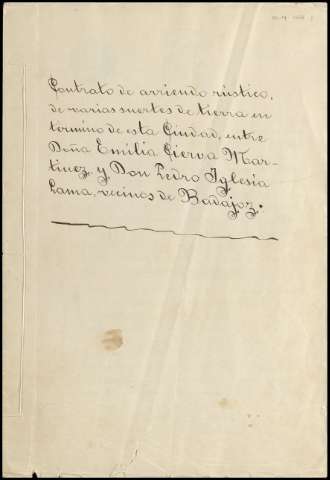 Contrato de arriendo rústico,
de varias suertes de tierra en
término de esta Ciudad, entre
Doña Emilia Cierva Mar-
tinez, y Don Pedro Iglesia
Lama, vecinos de Badajoz.